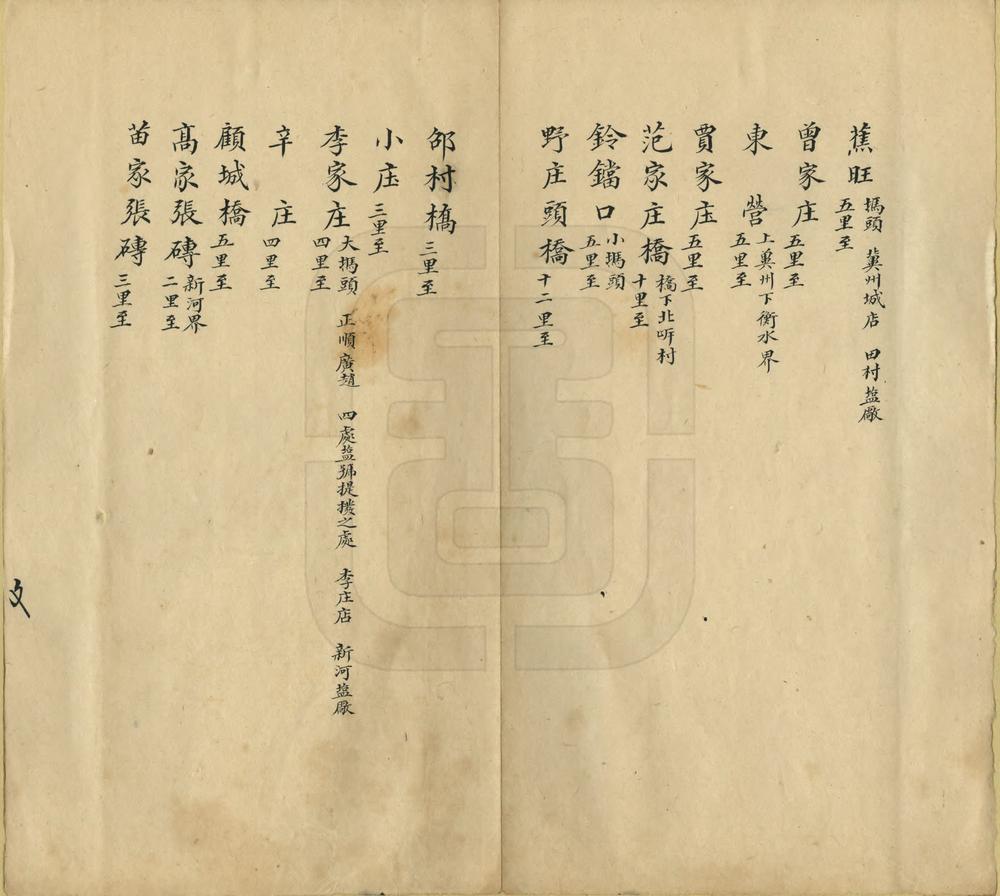 蕉旺 撝頭 冀州城店 田村盐廠 五里至
曾家庄 五里至
東營 上冀州下衡水界 五里至
賈家庄 五里至
范家庄橋 橋下北㖿村 十里至
鈴鐺口 小撝頭 五里至
野庄頭橋 十二里至
邵村橋 三里至
小庄 三里至
李家庄 大撝頭 正順廣趙 四處盐號提撥之處 李庄店 新河盐廠 四里至
辛庄 四里至
顧城橋 五里至
高家張磚 新河界 二里至
苗家張磚 三里至